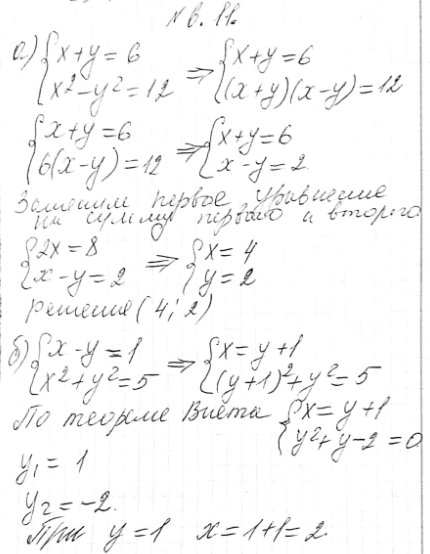 № 6.11.
а) {x+y=6 {x²-y²=12 ⇒ {x+y=6 {(x+y)(x-y)=12
{x+y=6 {6(x-y)=12 ⇒ {x+y=6 {x-y=2
Заменим первое уравнение
на сумму первого и второго
{2x=8 {x-y=2 ⇒ {x=4 {y=2
решение (4; 2)
б) {x-y=1 {x²+y²=5 ⇒ {x=y+1 {(y+1)²+y²=5
По теореме Виета {x=y+1 {y²+y-2=0
y₁=1
y₂=-2.
При y=1 x=1+1=2.